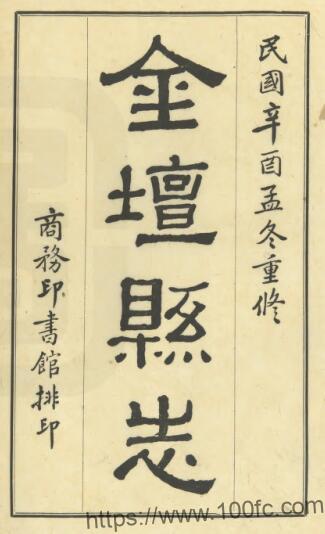 民國辛酉孟冬重修
金壇縣志
商務印書館排印
https://www.100fc.com